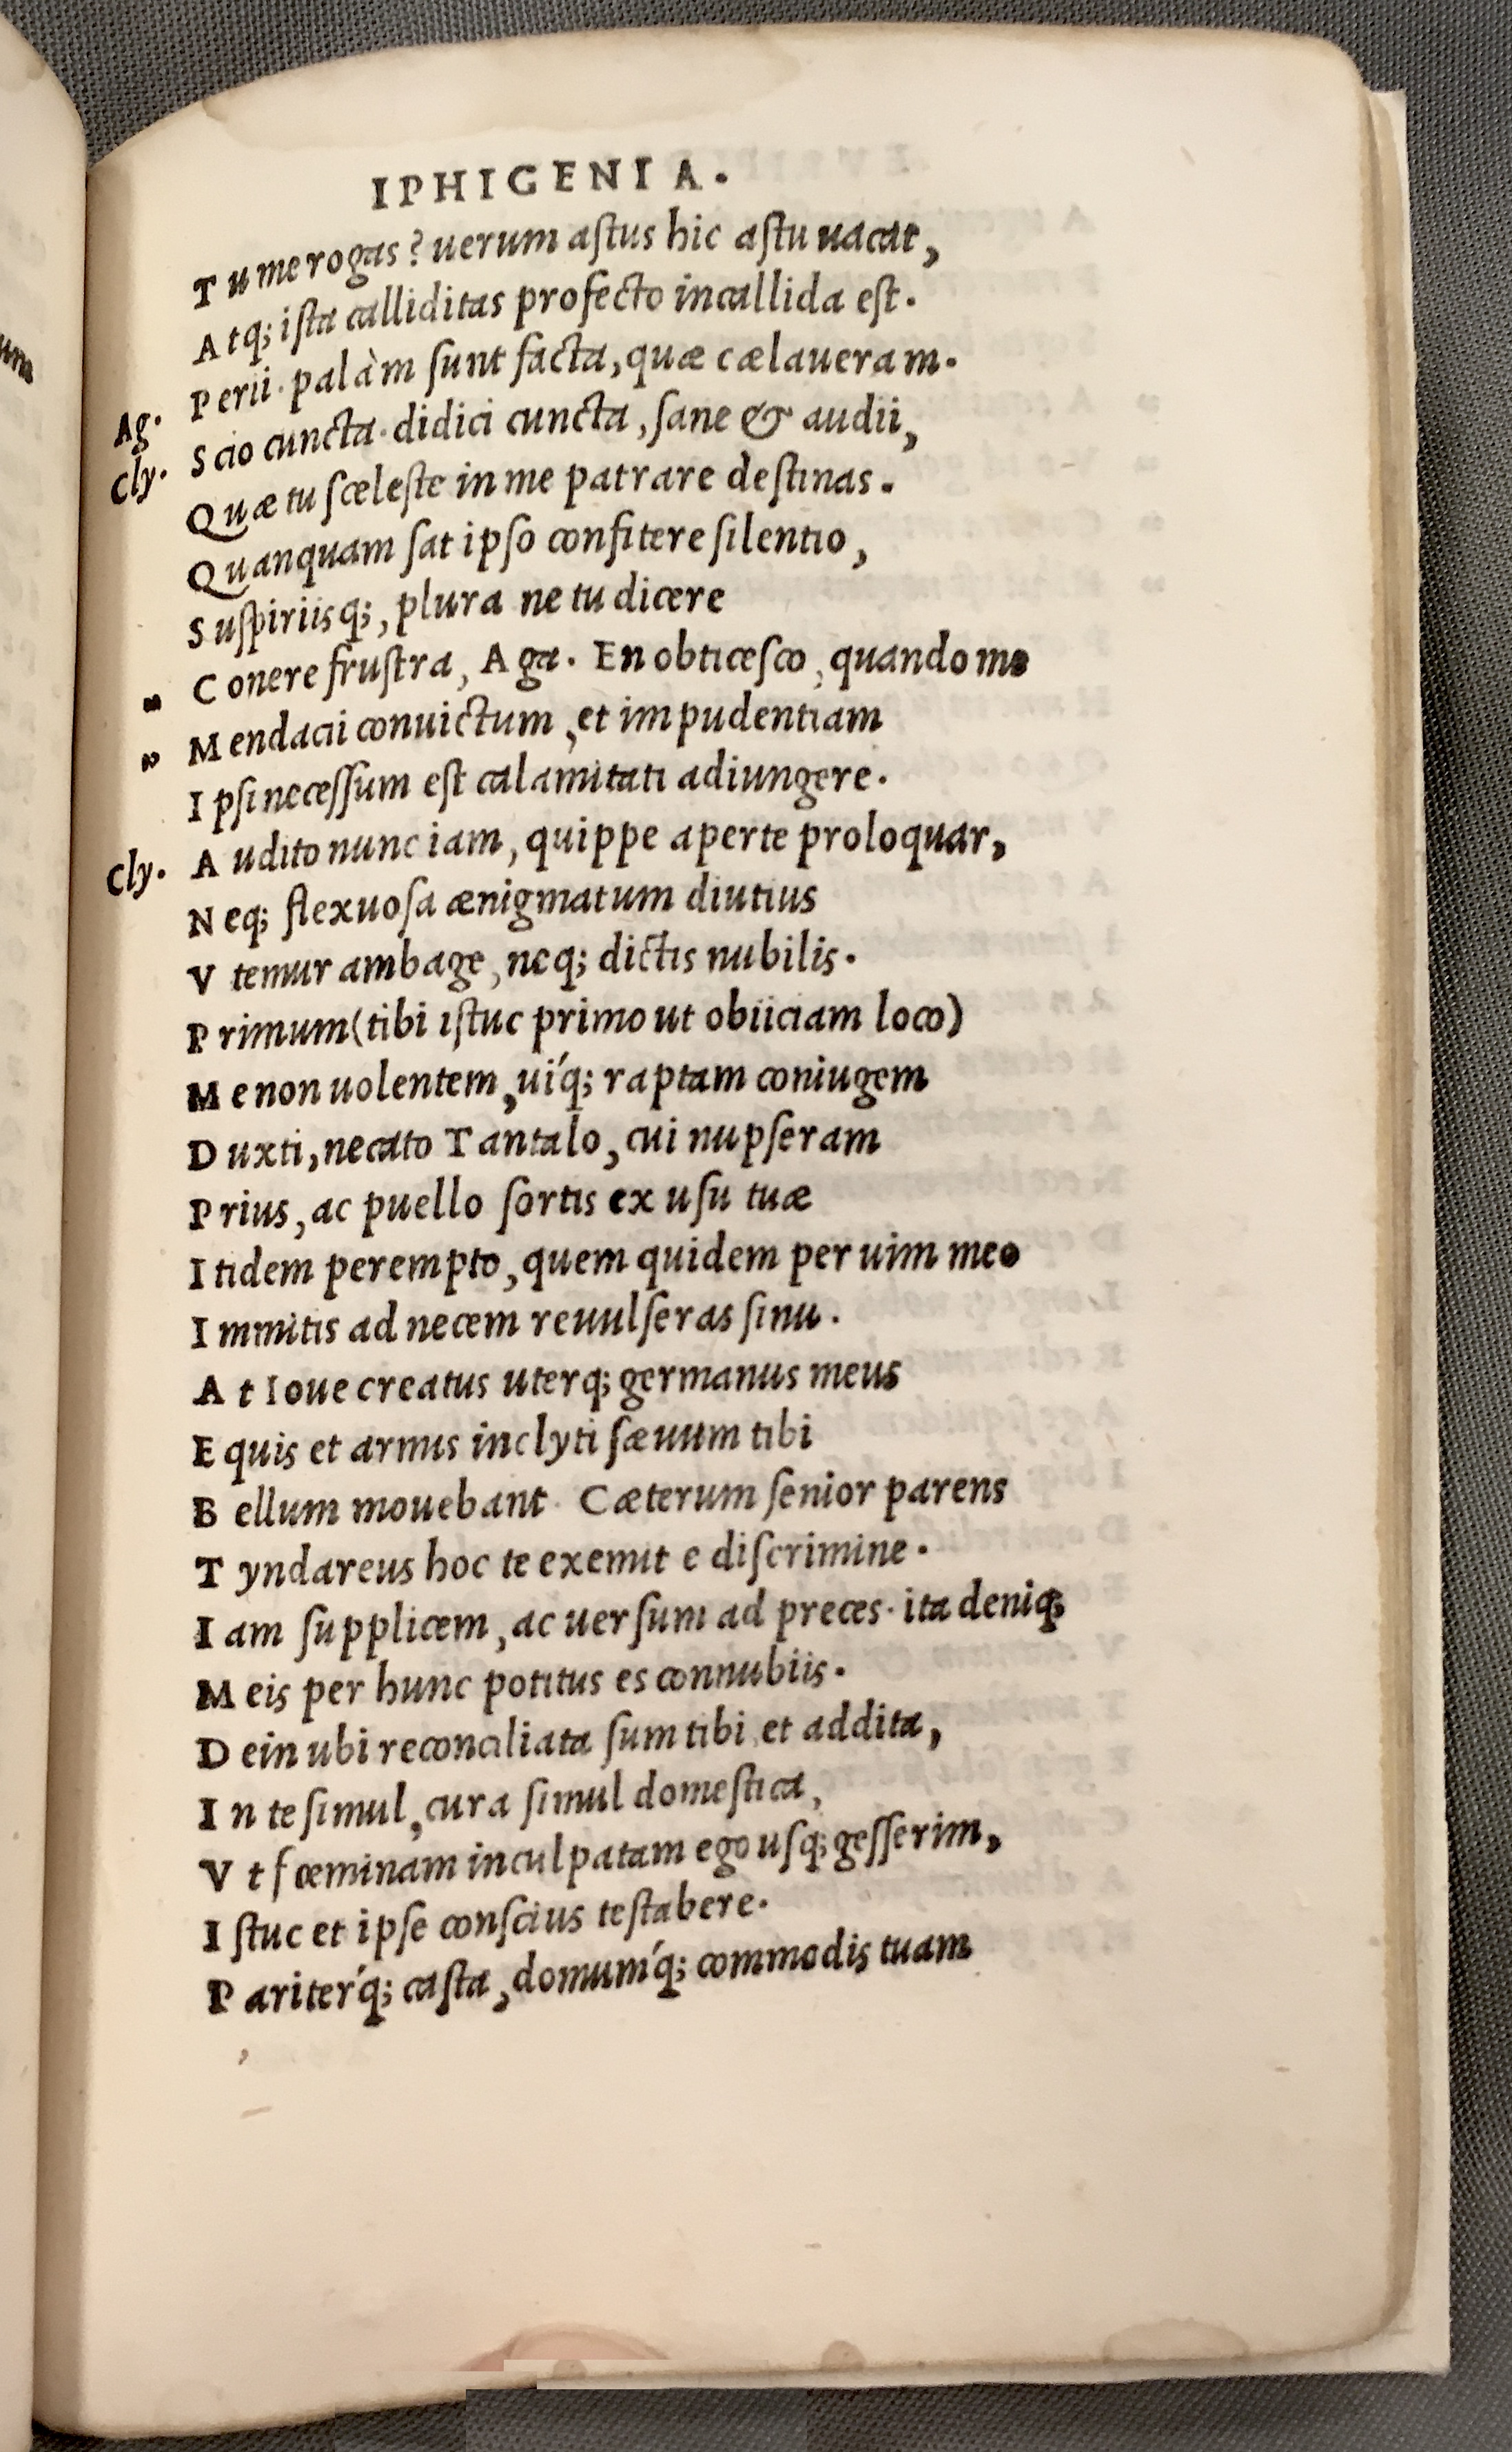 IPHIGENIA.
Tu me rogas? uerum aſtus hic aſtu uacat,
Atq; iſta calliditas profecto incallida eſt.
Ag. Perii. palàm ſunt facta, quæ cælaueram.
Cly. Scio cuncta. didici cuncta, ſane & audii,
Quæ tu ſceleſte in me patrare deſtinas.
Quanquam ſat ipſo confitere ſilentio,
Suſpiriisq;, plura ne tu dicere
" Conere fruſtra, Aga. En obticeſco, quando me
" Mendacii conuictum, et impudentiam
Ipſi neceſſum eſt calamitati adiungere.
Cly. Audito nunc iam, quippe aperte proloquar,
Neq; flexuoſa ænigmatum diutius
Vtemur ambage, neq; dictis nubilis.
Primum (tibi iſtuc primo ut obiiciam loco)
Me non uolentem, uíq; raptam coniugem
Duxti, necato Tantalo, cui nupſeram
Prius, ac puello ſortis ex uſu tuæ
Itidem perempto, quem quidem per uim meo
Immitis ad necem reuulſeras ſinu.
At Ioue creatus uterq; germanus meus
Equis et armis inclyti ſæuum tibi
Bellum mouebant. Cæterum ſenior parens
Tyndareus hoc te exemit e diſcrimine.
Iam ſupplicem, ac uerſum ad preces. ita deniq;
Meis per hunc potitus es connubiis.
Dein ubi reconciliata ſum tibi, et addita,
In te ſimul, cura ſimul domeſtica,
Vt fœminam inculpatam ego uſq; geſſerim,
Iſtuc et ipſe conſcius teſtabere.
Pariter'q; caſta, domum'q; commodis tuam